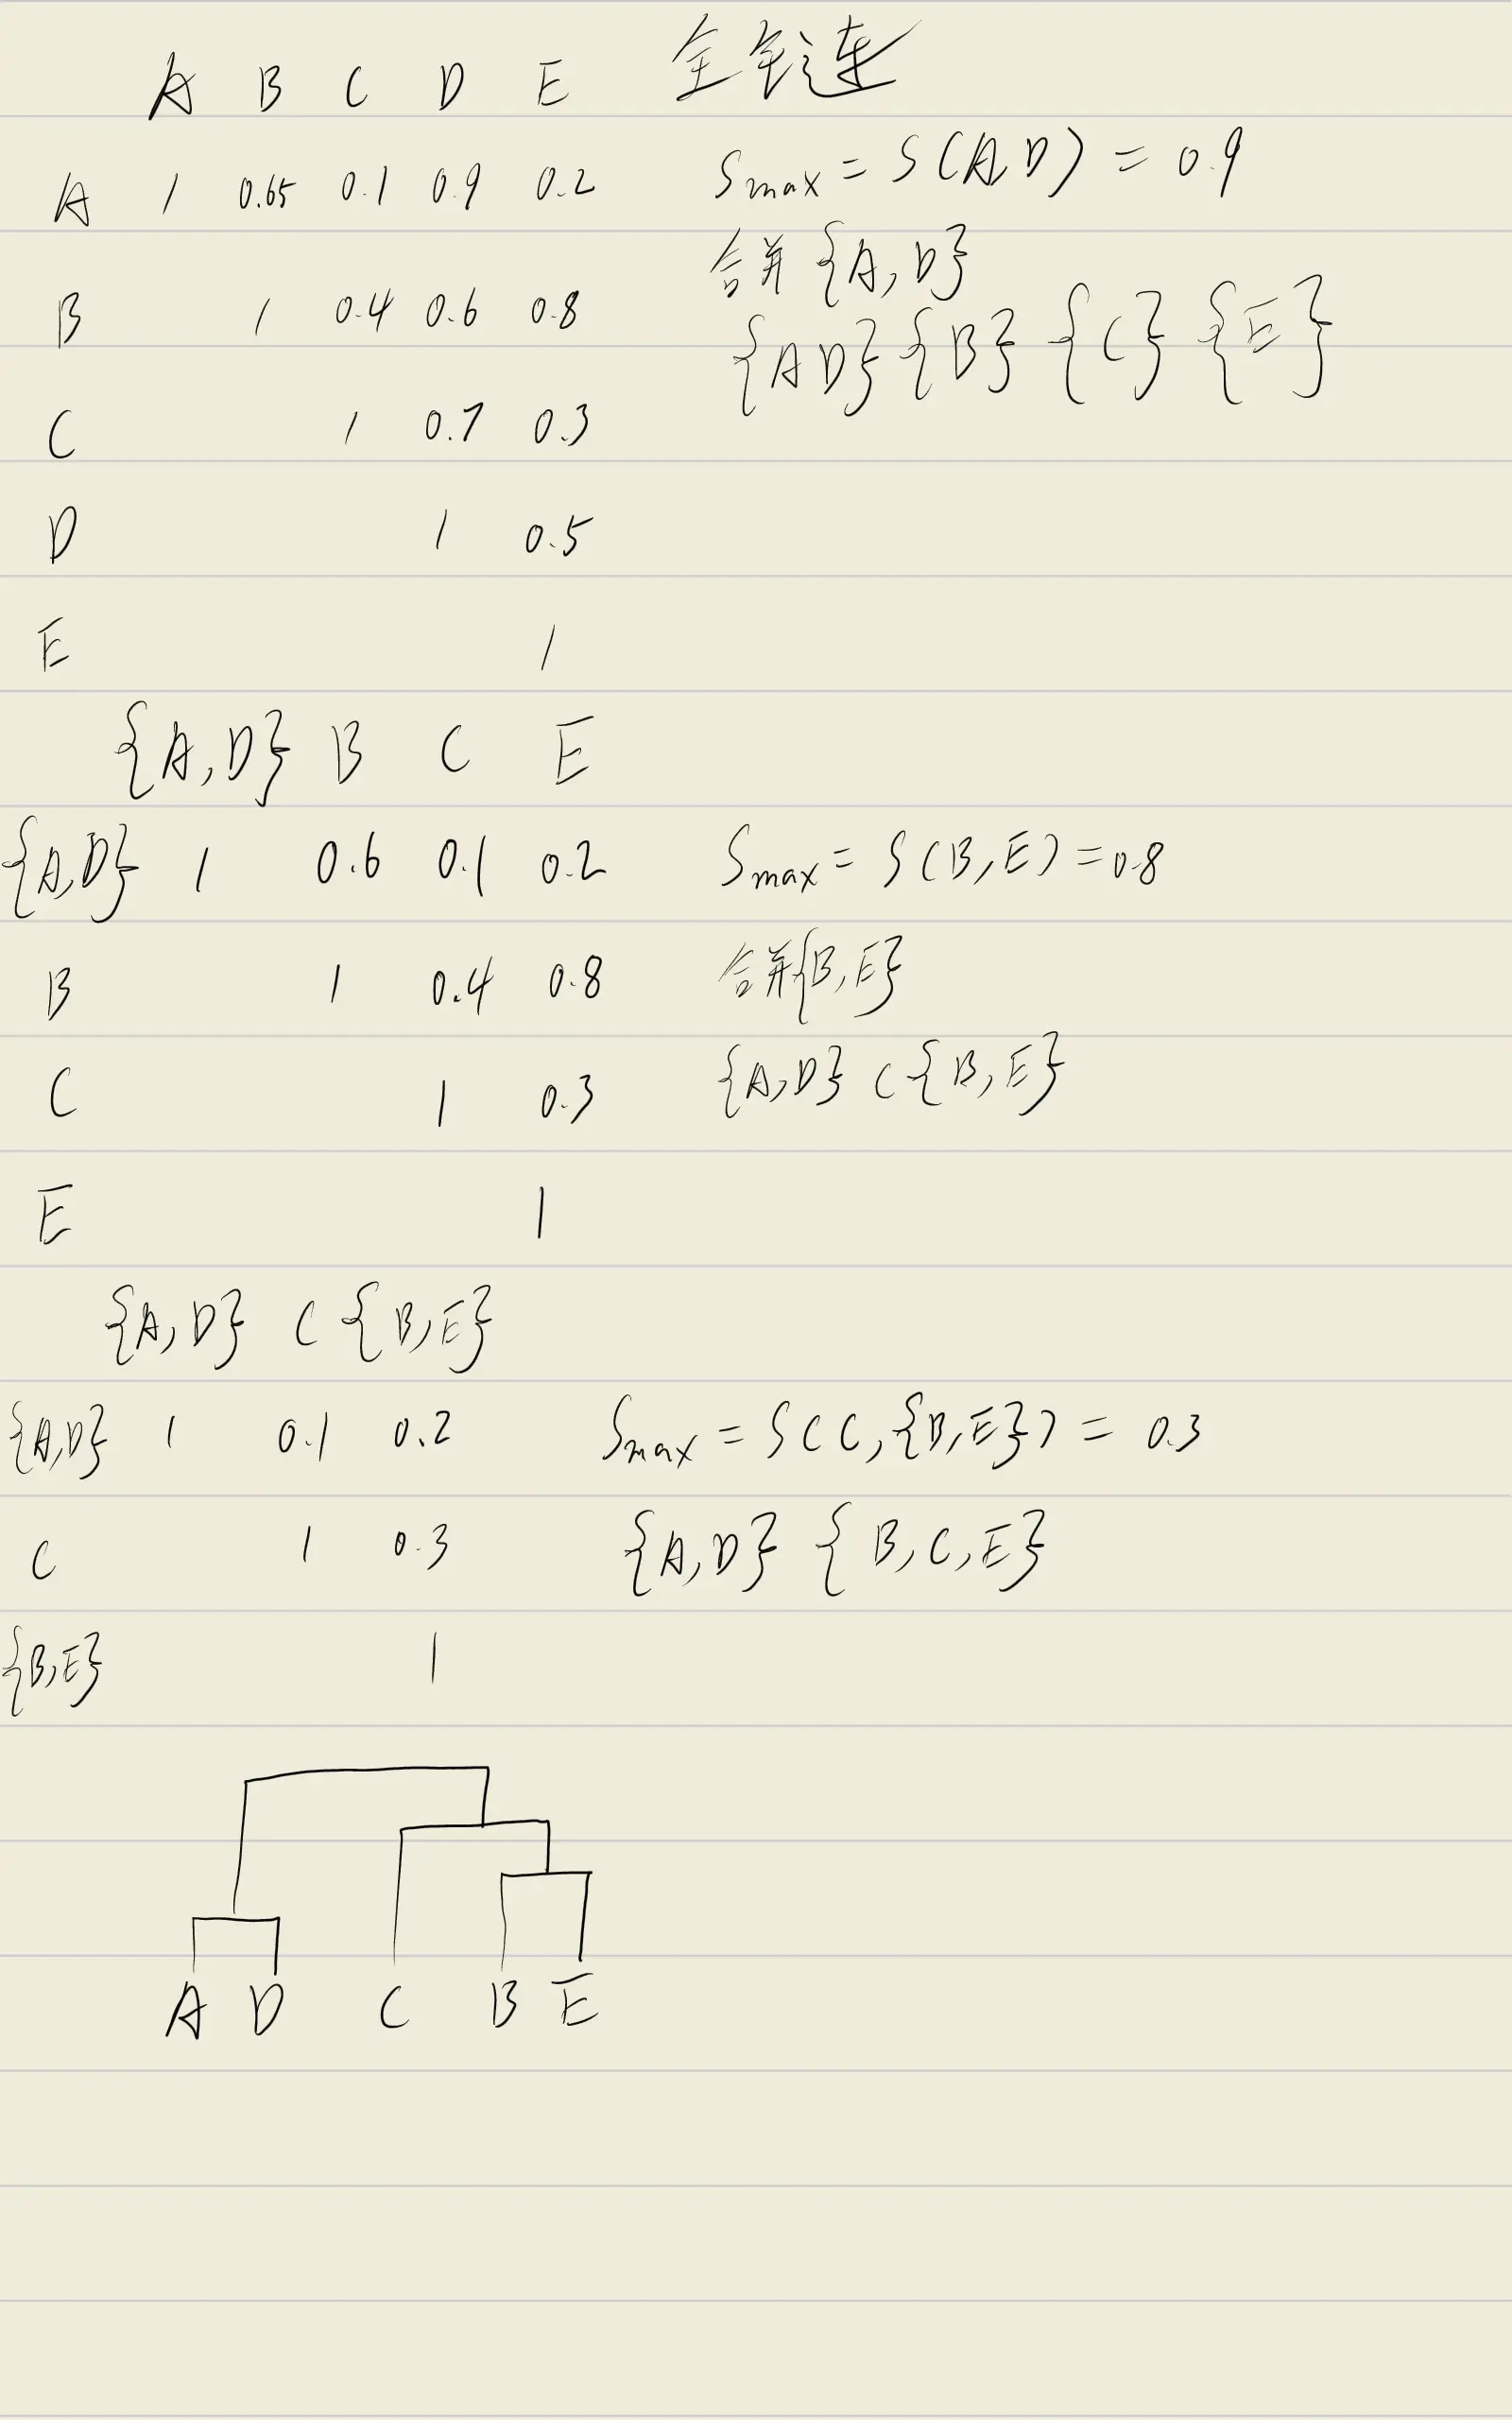 A B C D E 全链连
A 1 0.65 0.1 0.9 0.2 Smax = S(A,D) = 0.9
合并 {A,D}
B 1 0.4 0.6 0.8
{AD} {B} {C} {E}
C 1 0.7 0.3
D 1 0.5
E 1
{A,D} B C E
{A,D} 1 0.6 0.1 0.2 Smax = S(B,E) = 0.8
B 1 0.4 0.8 合并{B,E}
C 1 0.3 {A,D} C {B,E}
E 1
{A,D} C {B,E}
{A,D} 1 0.1 0.2 Smax = S(C,{B,E}) = 0.3
C 1 0.3 {A,D} {B,C,E}
{B,E} 1
A D C B E